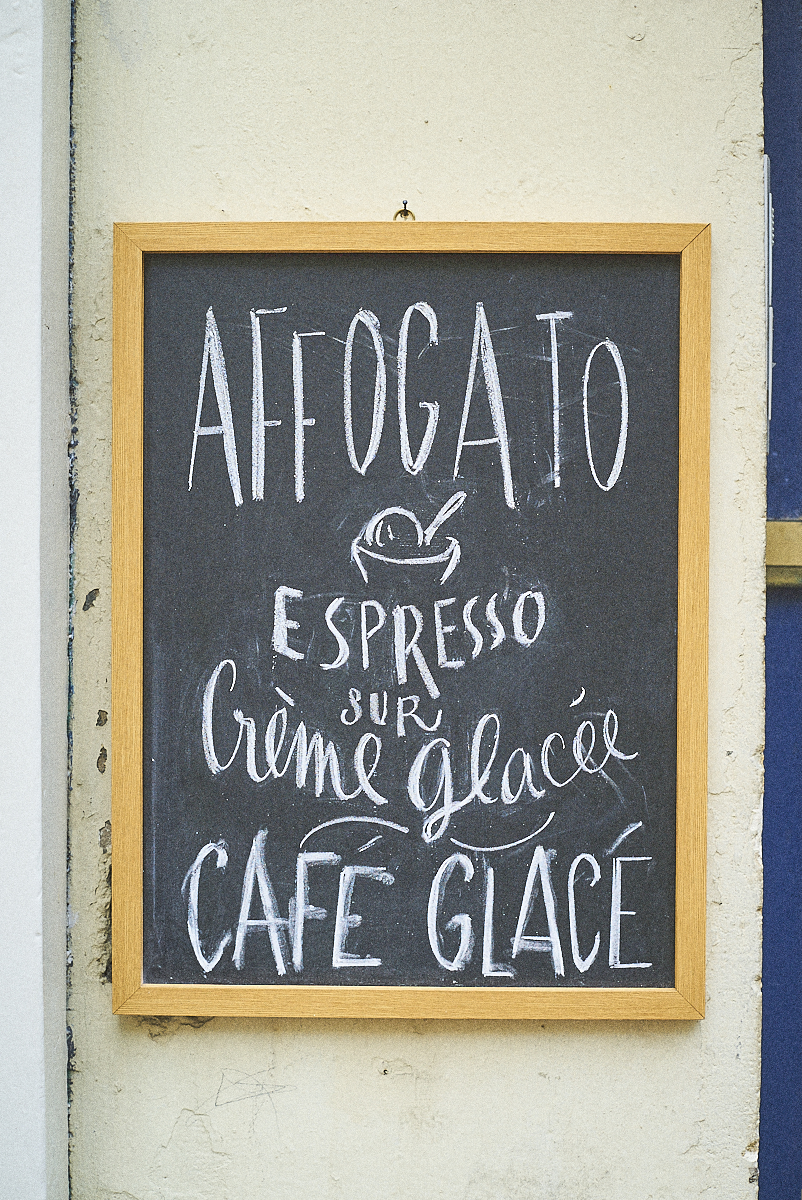 AFFOGATO
ESPRESSO
SUR
Crème glacée
CAFÉ GLACÉ